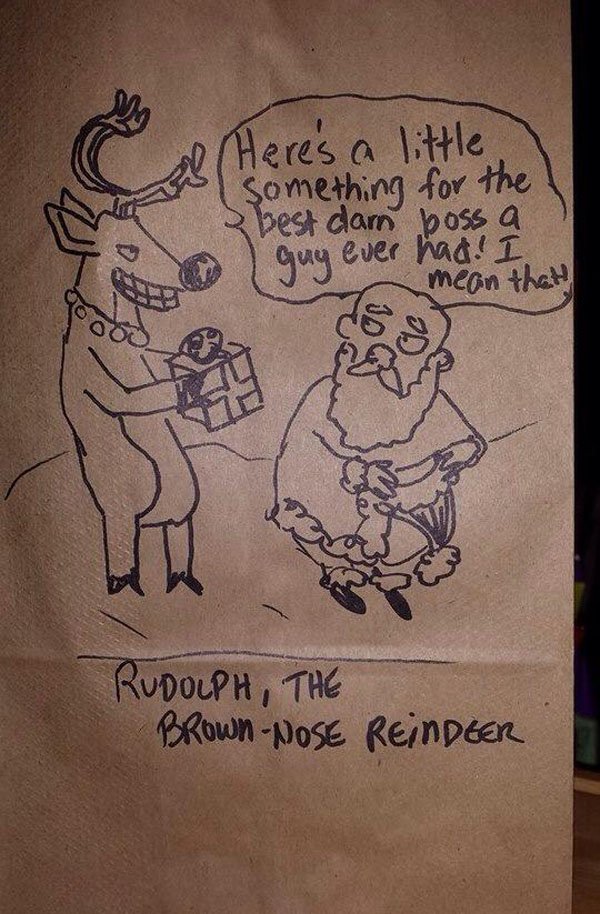 Here's a little
something for the
best darn boss a
guy ever had! I
mean that!
RUDOLPH, THE
BROWN-NOSE REINDEER